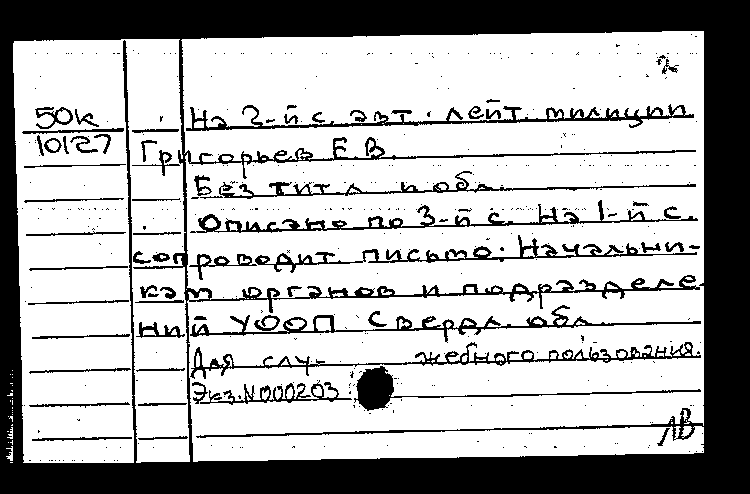 2
50к
10127
На 2-й с. авт. лейт. милиции
Григорьев Е.В.
Без тит л и обл.
Описано по 3-й с. На 1-й с.
сопроводит. письмо: Начальни-
кам органов и подразделе-
ний УООП Свердл. обл.
Для слу- жебного пользования.
Экз.N000203
ЛВ